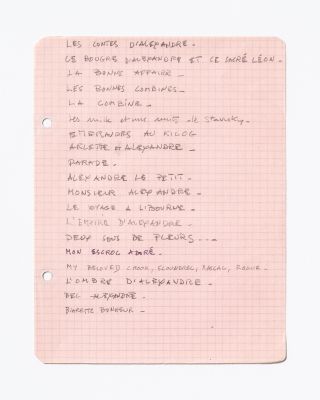 LES CONTES D'ALEXANDRE.
LE BOUGRE D'ALEXANDRE ET CE SACRÉ LÉON.
LA BONNE AFFAIRE.
LES BONNES COMBINES.
LA COMBINE.
Les mille et une nuits de Stavisky.
ÉMERAUDES AU KILOG
ARLETTE et ALEXANDRE.
PARADE.
ALEXANDRE LE PETIT.
MONSIEUR ALEXANDRE.
LE VOYAGE A LIBOURNE.
L'EMPIRE D'ALEXANDRE.
DEUX SOUS DE FLEURS...
MON ESCROC ADORÉ.
MY BELOVED CROOK, SCOUNDREL, RASCAL, ROGUE.
L'OMBRE D'ALEXANDRE.
BEL ALEXANDRE.
BIARRITZ BONHEUR.